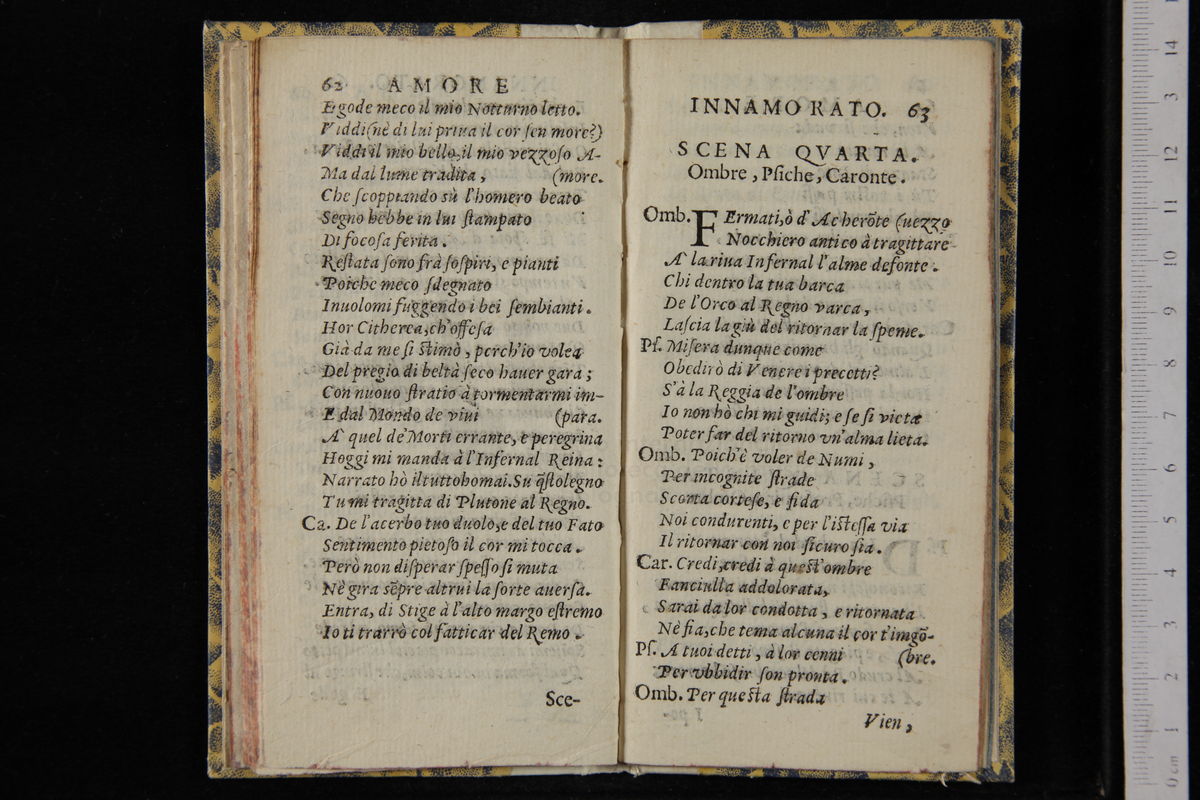 62 AMORE
E gode meco il mio Notturno letto.
Viddi (nè di lui priua il cor ſen more?)
Viddi il mio bello, il mio vezzoſo A-
Ma dal lume tradita, (more.
Che ſcoppiando sù l'homero beato
Segno hebbe in lui ſtampato
Di focoſa ferita.
Reſtata ſono frà ſoſpiri, e pianti
Poiche meco ſdegnato
Inuolomi fuggendo i bei ſembianti.
Hor Citherea, ch'offeſa
Già da me ſi ſtimò, perch'io volea
Del pregio di beltà ſeco hauer gara;
Con nuouo ſtratio à tormentarmi im-
E dal Mondo de viui (para.
A' quel de' Morti errante, e peregrina
Hoggi mi manda à l'Infernal Reina:
Narrato hò il tutto homai. Su q̃ſto legno
Tu mi tragitta di Plutone al Regno.
Ca. De l'acerbo tuo duolo, e del tuo Fato
Sentimento pietoſo il cor mi tocca.
Però non diſperar ſpeſſo ſi muta
Nè gira sẽpre altrui la ſorte auerſa.
Entra, di Stige à l'alto margo eſtremo
Io ti trarrò col fatticar del Remo.
Sce-
INNAMORATO. 63
SCENA QVARTA.
Ombre, Pſiche, Caronte.
Omb. FErmati, ò d'Acherõte (uezzo
Nocchiero antico à tragittare
A' la riua Infernal l'alme defonte.
Chi dentro la tua barca
De l'Orco al Regno varca,
Laſcia la giù del ritornar la ſpeme.
Pſ. Miſera dunque come
Obedirò di Venere i precetti?
S'à la Reggia de l'ombre
Io non hò chi mi guidi; e ſe ſi vieta
Poter far del ritorno vn'alma lieta.
Omb. Poich'è voler de Numi,
Per incognite ſtrade
Scorta corteſe, e fida
Noi condurenti, e per l'iſteſſa via
Il ritornar con noi ſicuro ſia.
Car. Credi, credi à queſt'ombre
Fanciulla addolorata,
Sarai da lor condotta, e ritornata
Nè fia, che tema alcuna il cor t'imgõ-
Pſ. A tuoi detti, à lor cenni (bre.
Per vbbidir ſon pronta.
Omb. Per queſta ſtrada
Vien,